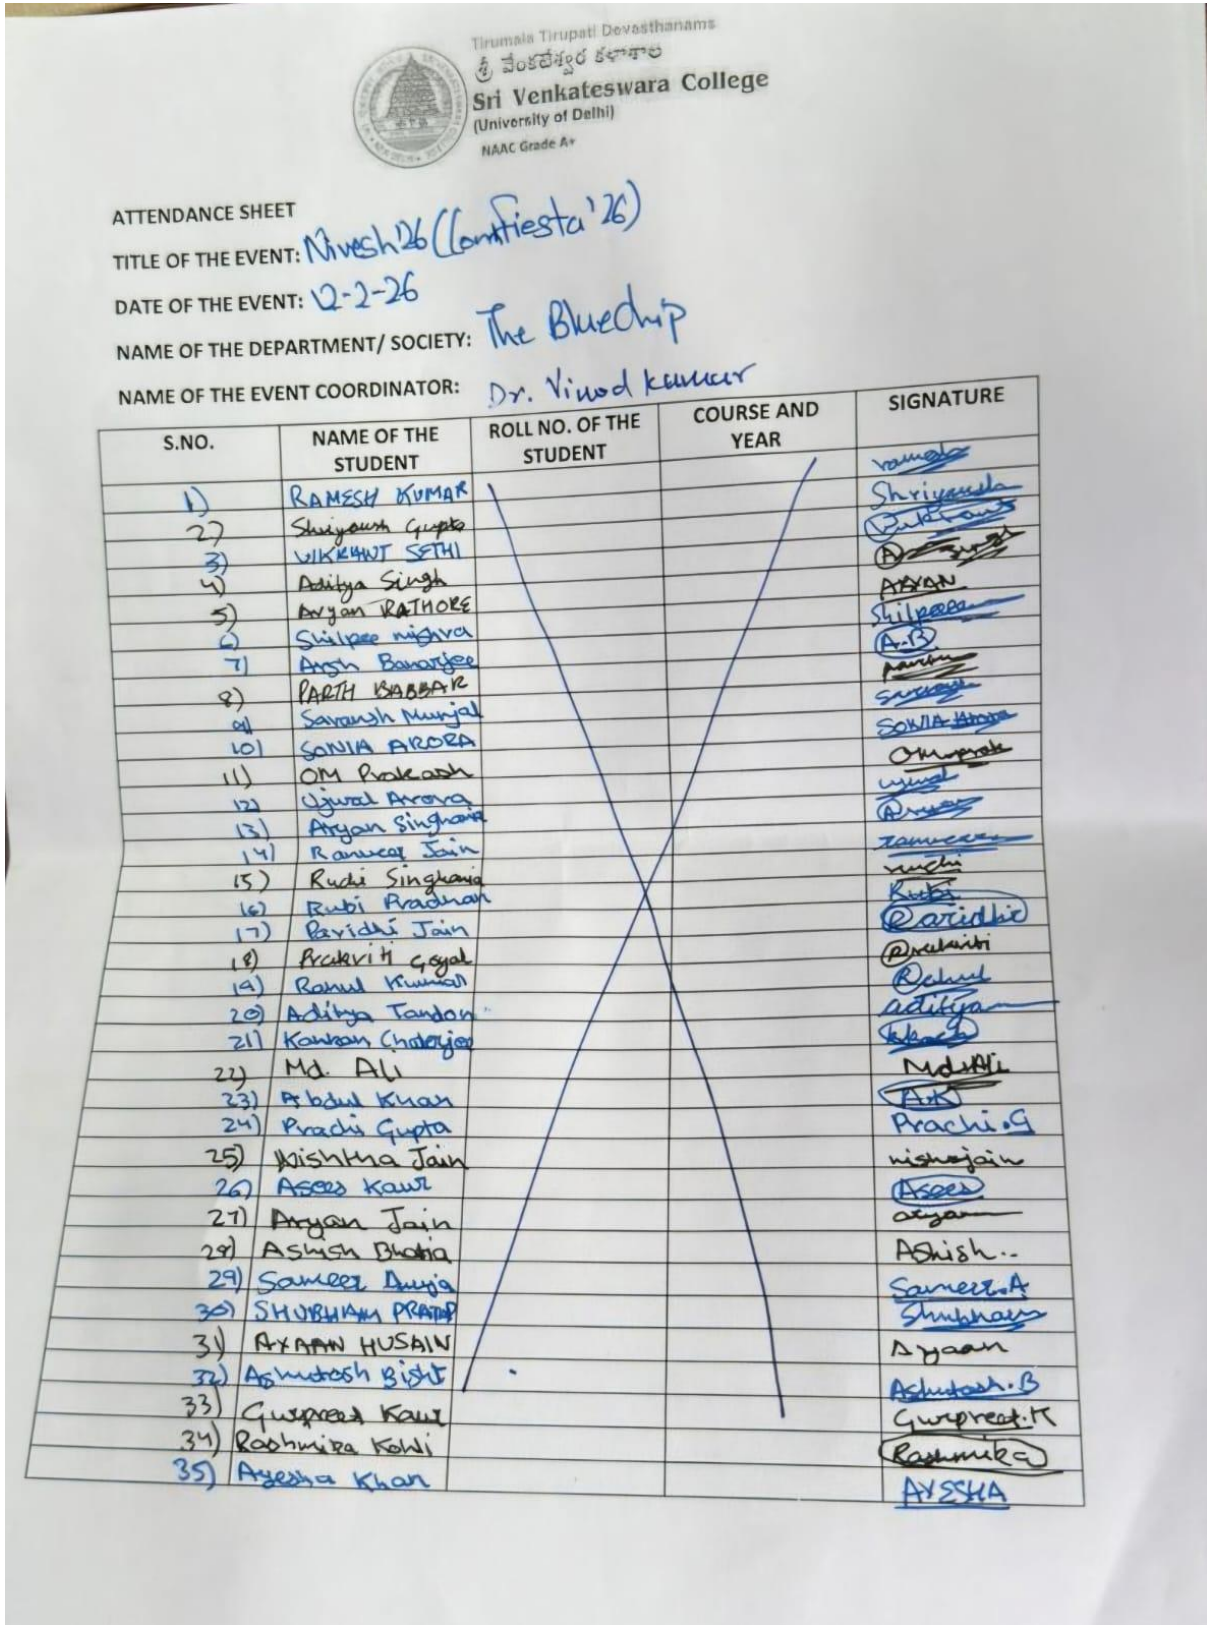 Tirumala Tirupati Devasthanams
శ్రీ వేంకటేశ్వర కళాశాల
Sri Venkateswara College
(University of Delhi)
NAAC Grade A+
ATTENDANCE SHEET
TITLE OF THE EVENT: Nivesh'26 (ComFiesta'26)
DATE OF THE EVENT: 12-2-26
NAME OF THE DEPARTMENT/ SOCIETY: The BlueChip
NAME OF THE EVENT COORDINATOR: Dr. Vinod Kumar
S.NO. NAME OF THE STUDENT ROLL NO. OF THE STUDENT COURSE AND YEAR SIGNATURE
1) RAMESH KUMAR ramesh
2) Shriyansh Gupta Shriyansh
3) VIKRANT SETHI Vikrant
4) Aditya Singh A Singh
5) Aryan RATHORE ARYAN
6) Shilpee mishra Shilpee
7) Ansh Banarjee A.B
8) PARTH BABBAR
9) Saransh Munjal
10) SONIA ARORA SONIA Arora
11) OM Prakash Omprak
12) Ujwal Arora ujwal
13) Aryan Singhania
14) Ranveer Jain ranveer
15) Ruchi Singhania ruchi
16) Rubi Pradhan Rubi
17) Paridhi Jain Paridhi
18) Prakriti Goyal Prakriti
19) Rahul Kumar Rahul
20) Aditya Tandon aditya
21) Kankan Chaterjee
22) Md. Ali Md. Ali
23) Abdul Khan A.K
24) Prachi Gupta Prachi.G
25) Nishtha Jain nishajain
26) Asees Kaur Asees
27) Aryan Jain aryan
28) Ashish Bhatia Ashish..
29) Sameer Anuja Sameer.A
30) SHUBHAM PRATAP Shubham
31) AYAAN HUSAIN Ayaan
32) Ashutosh Bisht Ashutosh.B
33) Gurpreet Kaur Gurpreet.K
34) Rashmika Kohli Rashmika
35) Ayesha Khan AYESHA